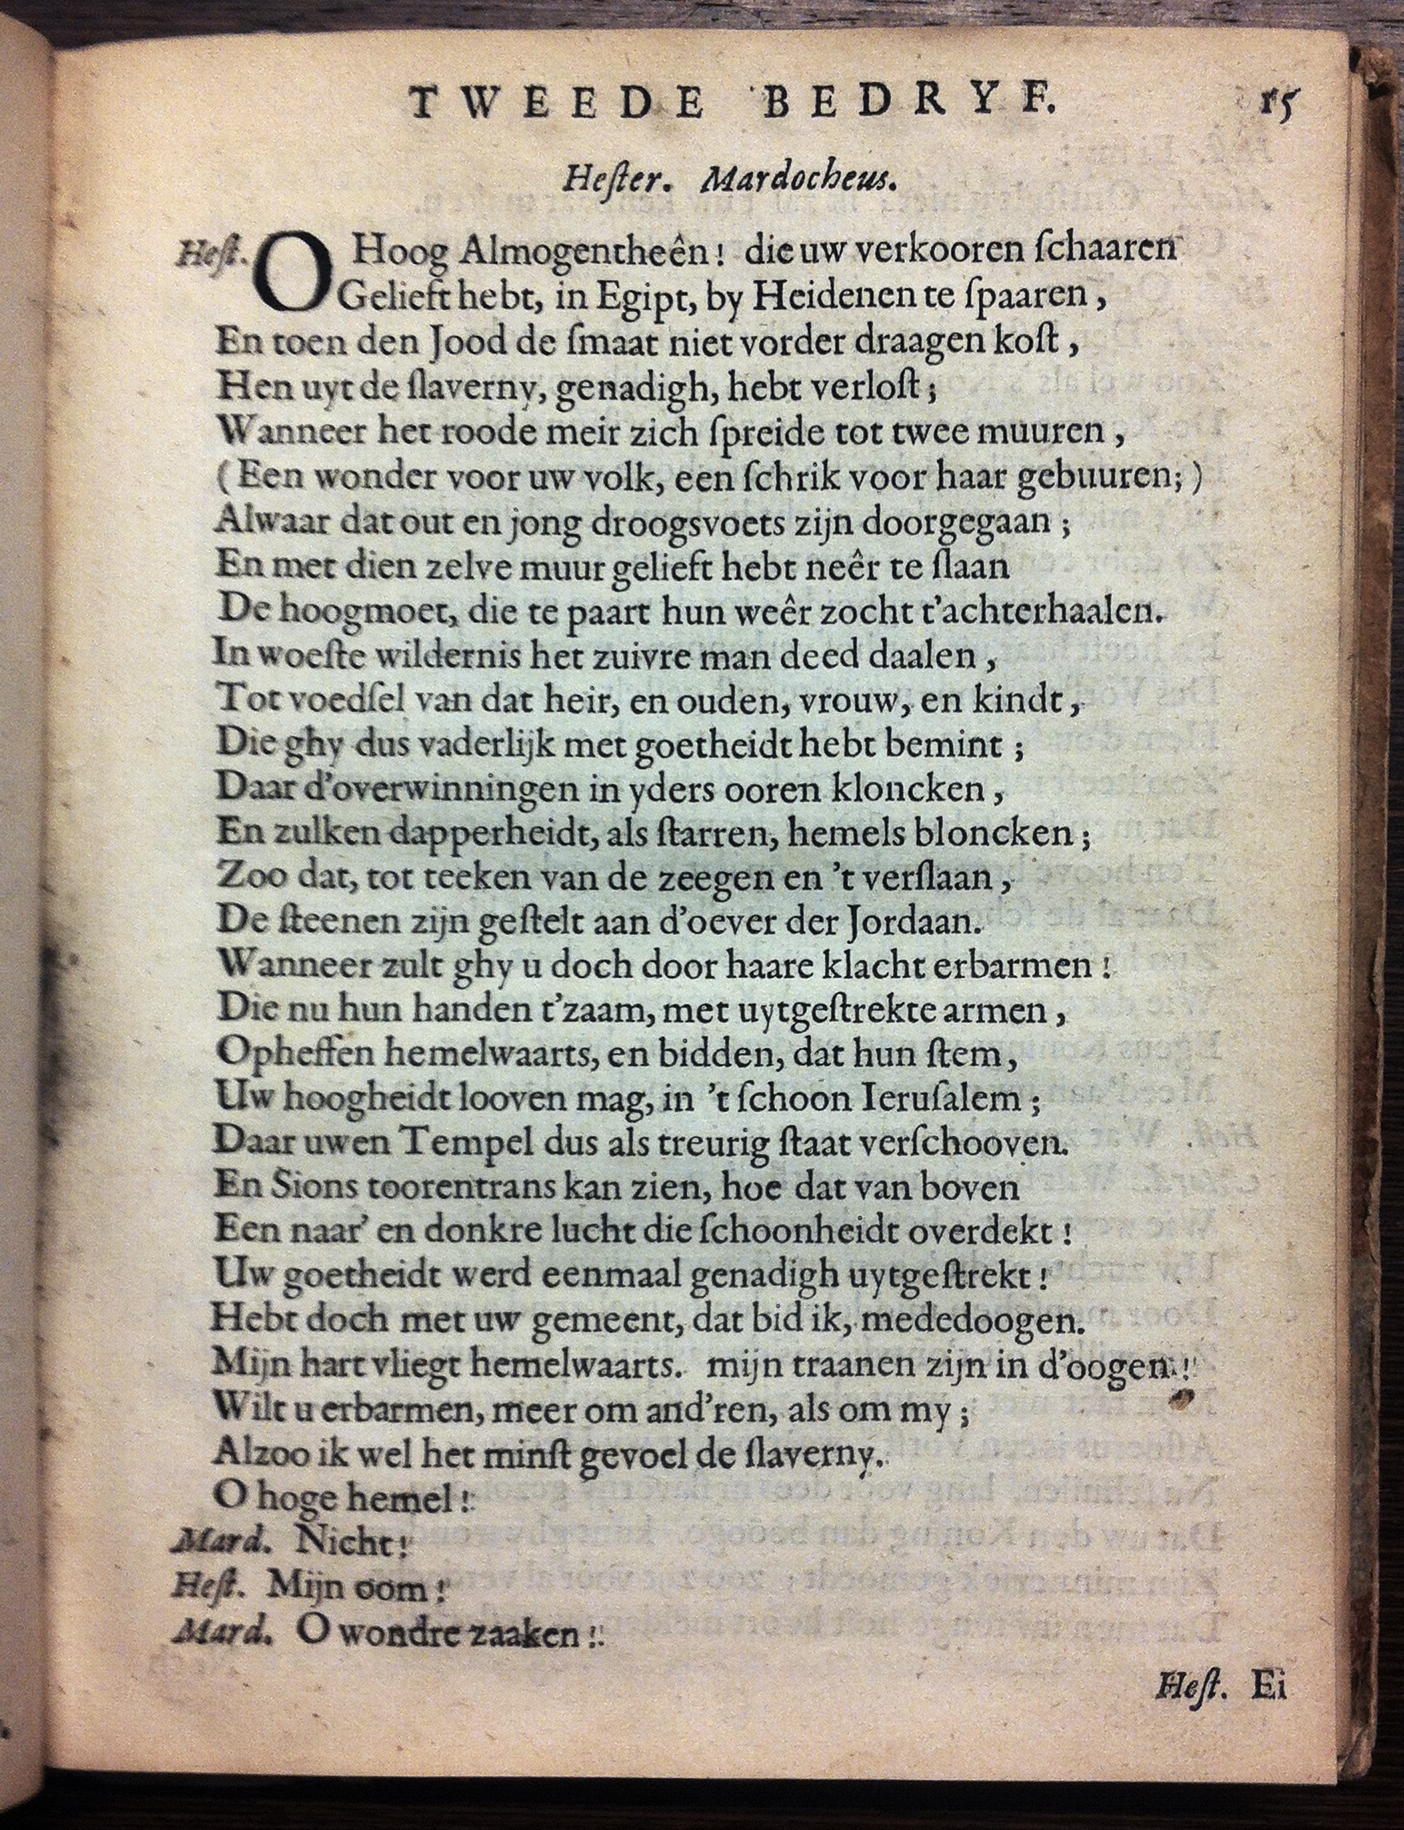 TWEEDE BEDRYF. 15
Heſter. Mardocheus.
Heſt. O Hoog Almogentheên! die uw verkooren ſchaaren
Gelieft hebt, in Egipt, by Heidenen te ſpaaren,
En toen den Jood de ſmaat niet vorder draagen koſt,
Hen uyt de ſlaverny, genadigh, hebt verloſt;
Wanneer het roode meir zich ſpreide tot twee muuren,
(Een wonder voor uw volk, een ſchrik voor haar gebuuren;)
Alwaar dat out en jong droogsvoets zijn doorgegaan;
En met dien zelve muur gelieft hebt neêr te ſlaan
De hoogmoet, die te paart hun weêr zocht t'achterhaalen.
In woeſte wildernis het zuivre man deed daalen,
Tot voedſel van dat heir, en ouden, vrouw, en kindt,
Die ghy dus vaderlijk met goetheidt hebt bemint;
Daar d'overwinningen in yders ooren kloncken,
En zulken dapperheidt, als ſtarren, hemels bloncken;
Zoo dat, tot teeken van de zeegen en 't verſlaan,
De ſteenen zijn geſtelt aan d'oever der Jordaan.
Wanneer zult ghy u doch door haare klacht erbarmen!
Die nu hun handen t'zaam, met uytgeſtrekte armen,
Opheffen hemelwaarts, en bidden, dat hun ſtem,
Uw hoogheidt looven mag, in 't ſchoon Ieruſalem;
Daar uwen Tempel dus als treurig ſtaat verſchooven.
En Sions toorentrans kan zien, hoe dat van boven
Een naar' en donkre lucht die ſchoonheidt overdekt!
Uw goetheidt werd eenmaal genadigh uytgeſtrekt!
Hebt doch met uw gemeent, dat bid ik, mededoogen.
Mijn hart vliegt hemelwaarts. mijn traanen zijn in d'oogen!
Wilt u erbarmen, meer om and'ren, als om my;
Alzoo ik wel het minſt gevoel de ſlaverny.
O hoge hemel!
Mard. Nicht!
Heſt. Mijn oom!
Mard. O wondre zaaken!
Heſt. Ei